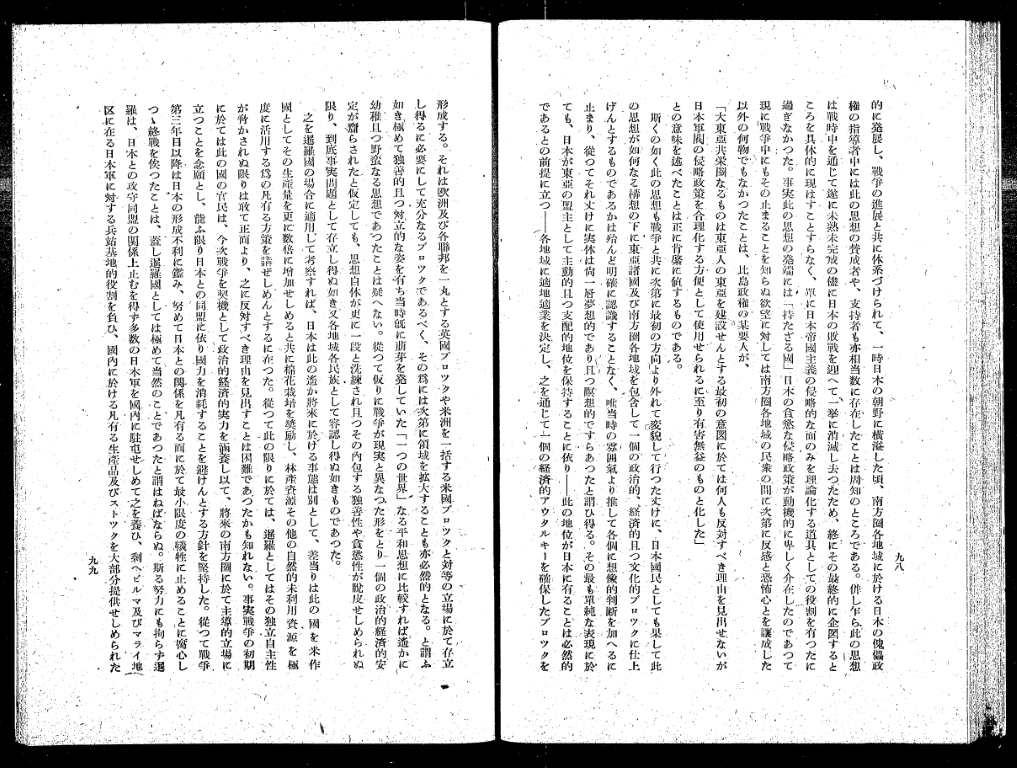 九八
的に発展し、戰爭の進展と共に体系づけられて、一時日本の朝野に橫溢した頃、南方圏各地域に於ける日本の傀儡政
権の指導者中には此の思想の賛成者や、支持者も亦相当数に存在したことは周知のところである。併し乍ら此の思想
は戰時中を通じて遂に未熟未完成の儘に日本の敗戰を迎へて一挙に消滅し去つたため、終にその最終的に企図すると
ころを具体的に現はすことすらなく、單に日本帝國主義の侵略的な面のみを理論化する道具としての役割を有つたに
過ぎなかつた。事実此の思想の発端には「持たざる國」日本の貪慾な侵略政策が動機的に卑しく介在したのであつて
現に戰爭中にもその止まることを知らぬ欲望に対しては南方圏各地域の民衆の間に次第に反感と恐怖心とを譲成した
以外の何物でもなかつたことは、比島政権の某要人が、
「大東亞共栄圏なるものは東亞人の東亞を建設せんとする最初の意図に於ては何人も反対すべき理由を見出せないが
日本軍閥の侵略政策を合理化する方便として使用せられるに至り有害無益のものと化した」
との意味を述べたことは正に肯綮に値するものである。
斯くの如く此の思想も戰爭と共に次第に最初の方向より外れて変貌して行つた丈けに、日本國民としても果して此
の思想が如何なる構想の下に東亞諸國及び南方圏各地域を包含して一個の政治的、経済的且つ文化的ブロツクに仕上
げんとするものであるかは殆んど明確に認識することなく、唯当時の雰囲氣より推して各個に想像的判断を加へるに
止まり、從つてそれ丈けに実体は尙一層夢想的であり且つ瞑想的ですらあつたと謂ひ得る。その最も單純な表現に於
ても、日本が東亞の盟主として主動的且つ支配的地位を保持することに依り——此の地位が日本に有ることは必然的
であるとの前提に立つ——各地域に適地適業を決定し、之を通じて一個の経済的アウタルキーを確保したブロツクを
形成する。それは欧洲及び各聯邦を一丸とする英國ブロツクや米洲を一括する米國ブロツクと対等の立場に於て存立
し得るに必要にして充分なるブロツクであるべく、その為には次第に領域を拡大することも亦必然的となる。と謂ふ
如き極めて独善的且つ対立的な姿を有ち当時既に萠芽を発していた「一つの世界」なる平和思想に比較すれば遙かに
幼稚且つ野蛮なる思想であつたことは疑へない。從つて仮りに戰爭が現実と異なつた形をとり一個の政治的経済的安
定が齎らされたと仮定しても、思想自体が更に一段と洗練され且つその内包する独善性や貪慾性が脱皮せしめられぬ
限り、到底事実問題として存立し得ぬ如き又各地域各民族として容認し得ぬ如きものであつた。
之を暹羅國の場合に適用して考察すれば、日本は此の遙か將來に於ける事態は別として、差当りは此の國を米作
國としてその生産量を更に数倍に増加せしめると共に棉花栽培を奬励し、林產資源その他の自然的未利用資源を極
度に活用する爲の凡有る方策を講ぜしめんとするに在つた。從つて此の限りに於ては、暹羅としてはその独立自主性
が脅かされぬ限りは敢て正面より、之に反対すべき理由を見出すことは困難であつたかも知れない。事実戰爭の初期
に於ては此の國の官民は、今次戰爭を契機として政治的経済的実力を涵養し以て、將來の南方圏に於て主導的立場に
立つことを念願とし、能ふ限り日本との同盟に依り國力を消耗することを避けんとする方針を堅持した。從つて戰爭
第三年目以降は日本の形成不利に鑑み、努めて日本との関係を凡有る面に於て最小限度の犠牲に止めることに腐心し
つゝ終戰を俟つたことは、蓋し暹羅國としては極めて当然のことであつたと謂はねばならぬ。斯る努力にも拘らず暹
羅は、日本との攻守同盟の関係上止むを得ず多数の日本軍を國内に駐屯せしめて之を養ひ、剩へビルマ及びマライ地
区に在る日本軍に対する兵站基地的役割を負ひ、國内に於ける凡有る生產品及びストツクを大部分提供せしめられた
九九